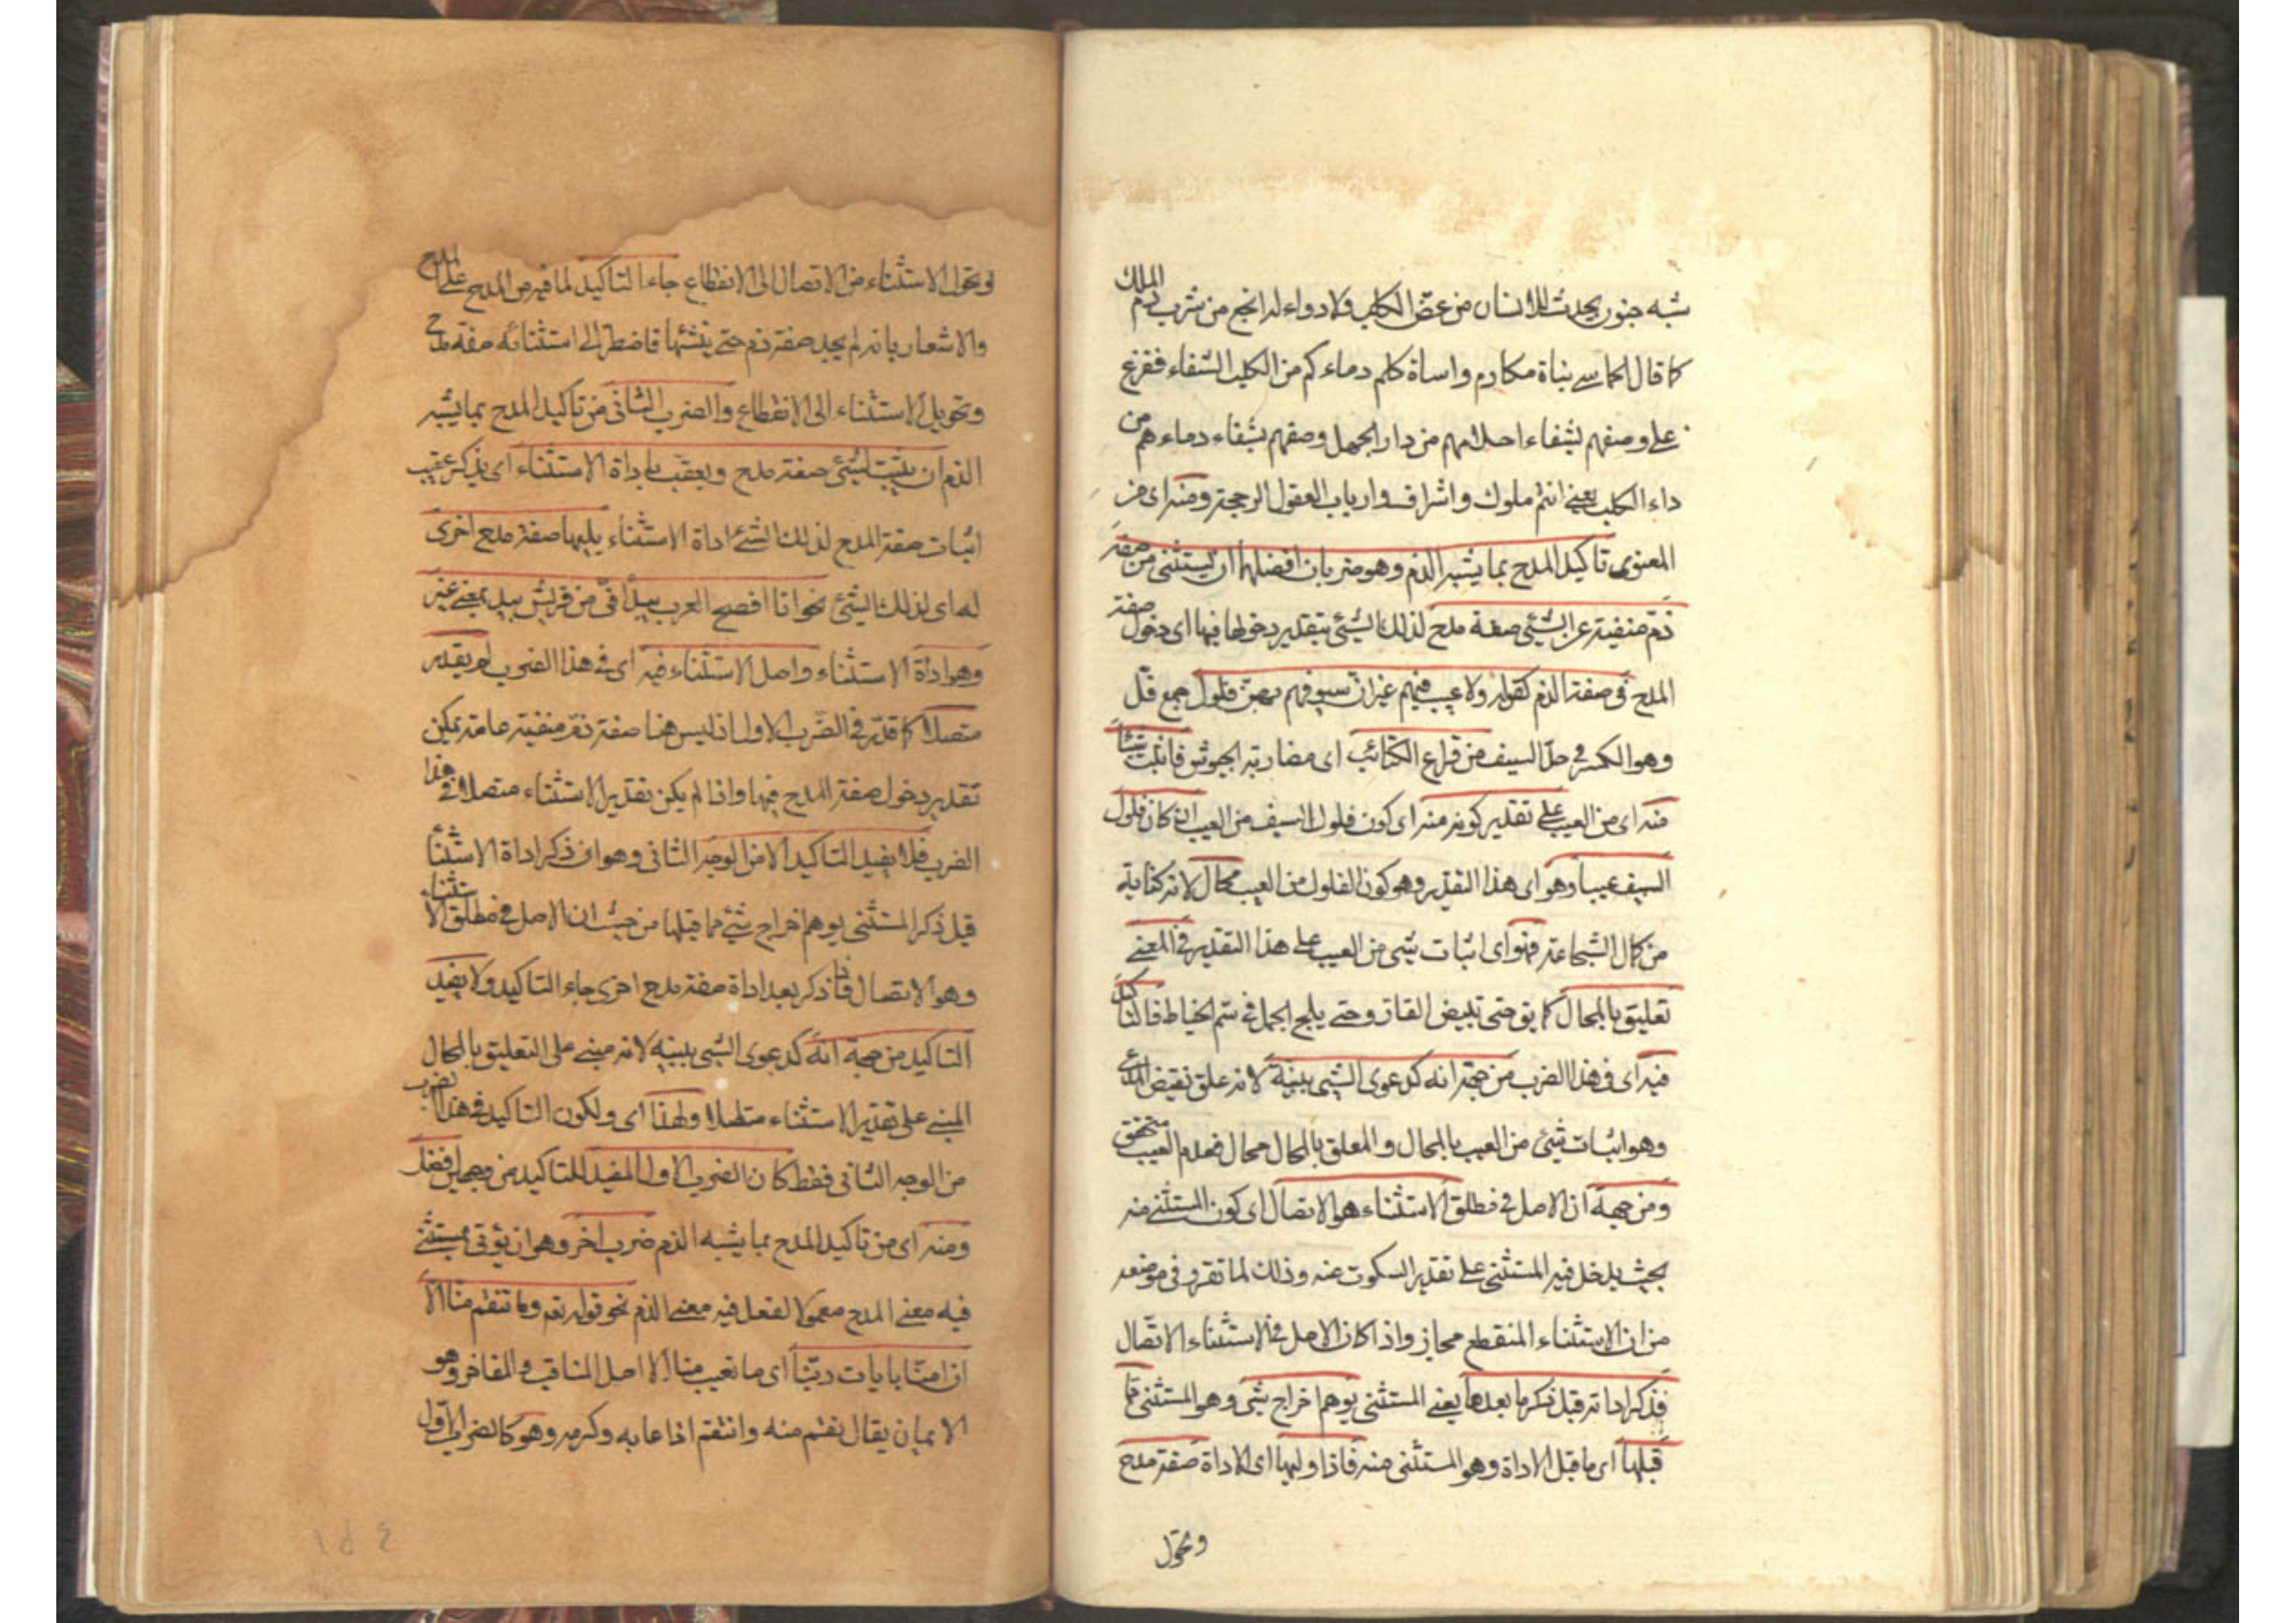 شبه جنون يحدث للانسان من عضّ الكلب ولا دواء له انجع من شرب دم الملك
كما قال الحماسي بناة مكارم واساة كلم دماءكم من الكلب الشفاء ففرع
على وصفهم بشفاء احلامهم من داء الجهل وصفهم بشفاء دماءهم من
داء الكلب يعني انتم ملوك واشراف وارباب العقول الرجحة ومنه اى من
المعنوى تاكيد المدح بما يشبه الذم وهو ضربان افضلهما ان يستثنى من صفة
ذم منفية عن الشيئ صفة مدح لذلك الشيئ بتقدير دخولها فيها اى دخول صفة
المدح فى صفة الذم كقوله ولا عيب فيهم غير ان سيوفهم بهن فلول جمع فلّ
وهو الكسر فى حدّ السيف من قراع الكتائب اى مضاربة الجيوش فاثبت شيئا
منه اى من العيب على تقدير كونه منه اى كون فلول السيف من العيب ان كان فلول
السيف عيبا وهو اى هذا التقدير وهو كون الفلول من العيب محال لانه كناية
من كمال الشجاعة فهو اى اثبات شيئ من العيب على هذا التقدير فى المعنى
تعليق بالمحال كما يق حتى تبيض القار وحتى يلج الجمل فى سمّ الخياط فالتاكيد
فيه اى فى هذا الضرب من جهة انه كدعوى الشيئ ببينة لانه علق نقيض المدعى
وهو اثبات شيئ من العيب بالمحال والمعلق بالمحال محال فعدم العيب متحقق
ومن جهة ان الاصل فى مطلق الاستثناء هو الاتصال اى كون المستثنى منه
بحيث يدخل فيه المستثنى على تقدير السكوت عنه وذلك لما تقرر فى موضعه
من ان الاستثناء المنقطع مجاز واذا كان الاصل فى الاستثناء الاتصال
فذكر اداته قبل ذكر ما بعدها يعني المستثنى يوهم اخراج شيئ وهو المستثنى مما
قبلها اى ما قبل الاداة وهو المستثنى منه فاذا وليها اى الاداة صفة مدح
وتحوّل
وتحول الاستثناء من الاتصال الى الانقطاع جاء التاكيد لما فيه من المدح على المدح
والاشعار بانه لم يجد صفة ذم حتى يثبتها فاضطر الى استثنائه صفة مدح
وتحويل الاستثناء الى الانقطاع والضرب الثانى من تاكيد المدح بما يشبه
الذم ان يثبت لشيئ صفة مدح ويعقب باداة الاستثناء اى يذكر عقيب
اثبات صفة المدح لذلك الشيئ اداة الاستثناء يليها صفة مدح اخرى
له اى لذلك الشيئ نحو انا افصح العرب بيد أنى من قريش بيد بمعنى غير
وهو اداة الاستثناء واصل الاستثناء فيه اى فى هذا الضرب لم يقدر
متصلا كما قدّر فى الضرب الاول اذ ليس هنا صفة ذم منفية عامة يمكن
تقدير دخول صفة المدح فيها واذا لم يكن تقدير الاستثناء متصلا فى هذا
الضرب فلا يفيد التاكيد الا من الوجه الثانى وهو ان ذكر اداة الاستثنا
قبل ذكر المستثنى يوهم اخراج شيئ مما قبلها من حيث ان الاصل فى مطلق الاستثناء
وهو الاتصال فاذا ذكر بعد اداة صفة مدح اخرى جاء التاكيد ولا يفيد
التاكيد من جهة انه كدعوى الشيئ ببينة لانه مبنى على التعليق بالمحال
المبنى على تقدير الاستثناء متصلا ولهذا اى ولكون التاكيد فى هذا الضرب
من الوجه الثانى فقط كان الضرب الاول المفيد للتاكيد من وجهين افضل
ومنه اى من تاكيد المدح بما يشبه الذم ضرب اخر وهو ان يؤتى بمستثنى
فيه معنى المدح معمولا لفعل فيه معنى الذم نحو قوله تعم وما تنقم منا الا
ان امنّا بايات ربّنا اى ما تعيب منا الا اصل المناقب والمفاخر وهو
الايمان يقال نقم منه وانتقم اذا عابه وكرهه وهو كالضرب الاوّل